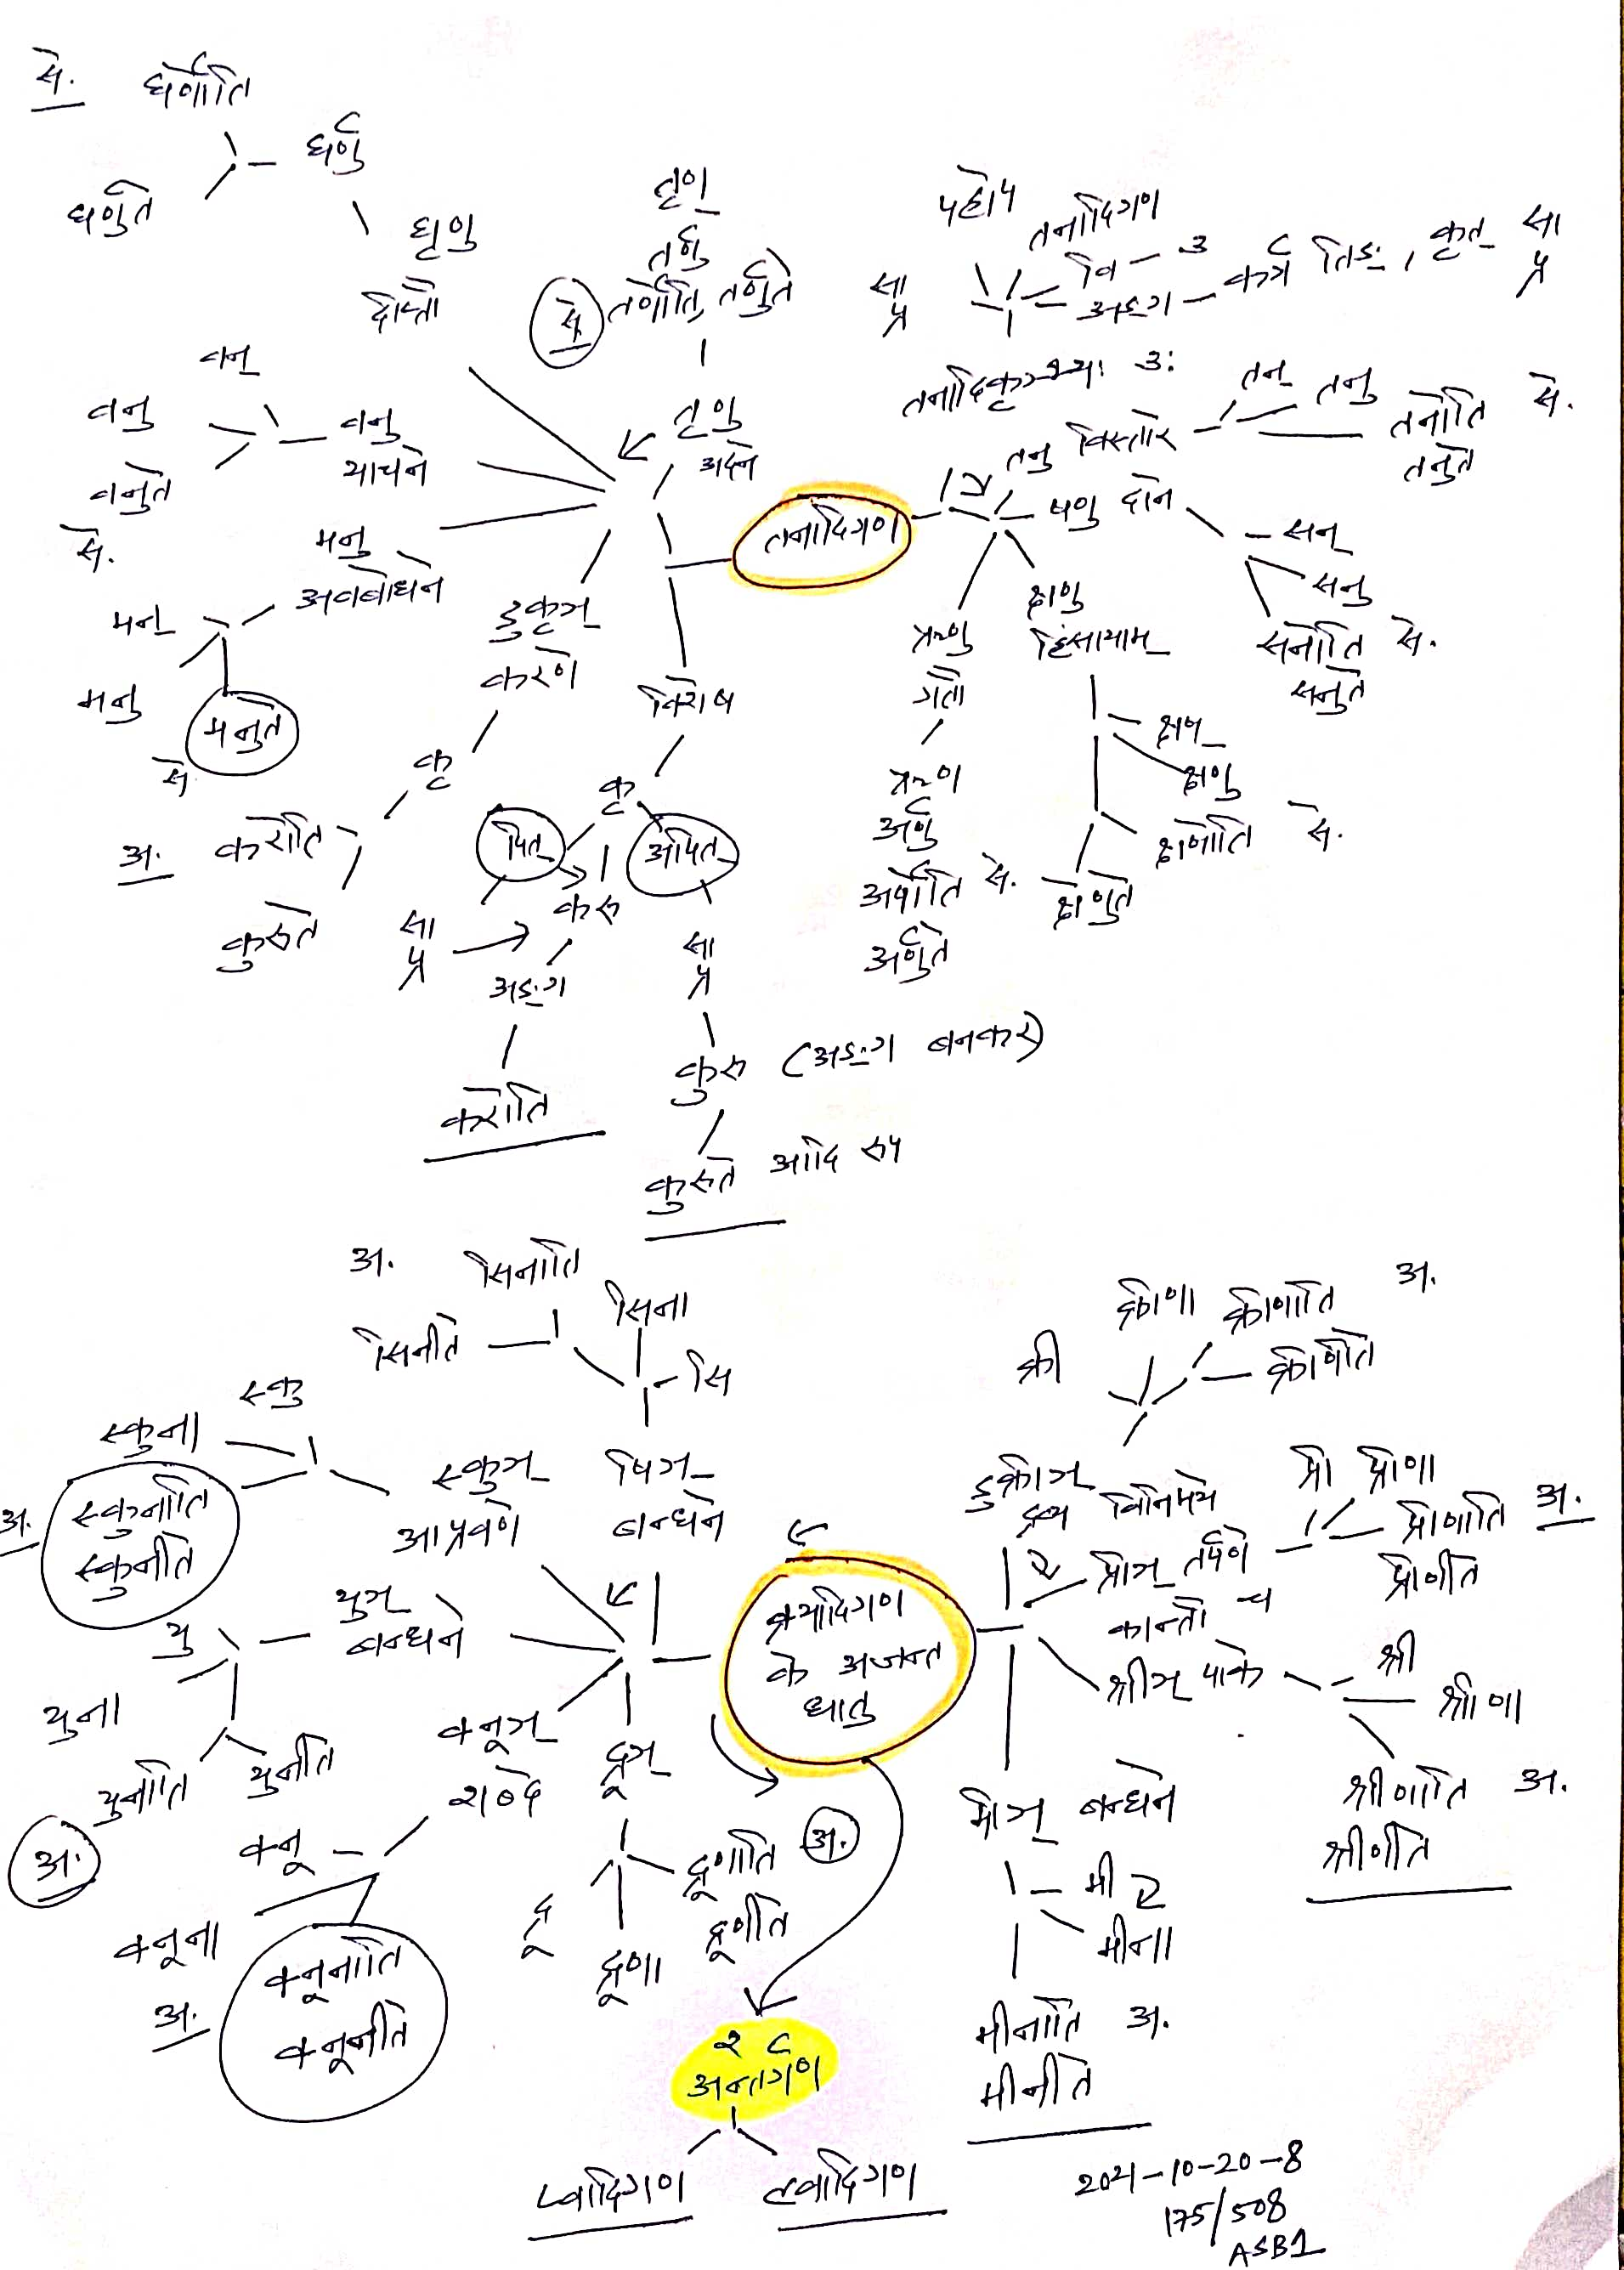 से.
घर्णोति
घर्णु
घर्णुते
घृणु
दीप्तौ
तृण्
तर्णु
से
तर्णोति, तर्णुते
तृणु
अदने
वन्
वनु
वनु
याचने
वनुते
से.
मनु
अवबोधने
मन्
मनु
मनुते
से.
डुकृञ्
करणे
कृ
अ.
करोति
कुरुते
तनादिगण
विशेष
कृ
पित्
अपित्
करु
सा
प्र
अङ्ग
करोति
सा
प्र
कुरु (अङ्ग बनकर)
कुरुते आदि रूप
पहले
तनादिगण
सा
प्र
वि — उ
अङ्ग — कर्तृ तिङ्, कृत् सा
प्र
तनादिकृञ्भ्यः उः
तनु विस्तारे
तन्
तनु
तनोति से.
तनुते
षणु दाने
सन्
सनु
सनोति से.
सनुते
क्षणु
हिंसायाम्
क्षण्
क्षणु
क्षणोति से.
क्षणुते
ऋणु
गतौ
ऋण्
अर्णु
अर्णोति से.
अर्णुते
अ. सिनाति
सिना
सिनीते
सि
षिञ्
बन्धने
स्कु
स्कुना
स्कुञ्
आप्रवणे
अ.
स्कुनाति
स्कुनीते
युञ्
बन्धने
यु
युना
युनाति
युनीते
अ.
क्नूञ्
शब्दे
क्नू
क्नूना
अ.
क्नूनाति
क्नूनीते
द्रूञ्
द्रू
द्रूणा
द्रूणाति अ.
द्रूणीते
क्र्यादिगण
के अजन्त
धातु
२
अन्तर्गण
प्वादिगण
ल्वादिगण
क्री
क्रीणा
क्रीणाति अ.
क्रीणीते
डुक्रीञ्
द्रव्य विनिमये
प्रीञ् तर्पणे
कान्तौ च
प्री प्रीणा
प्रीणाति अ.
प्रीणीते
श्रीञ् पाके
श्री
श्रीणा
श्रीणाति अ.
श्रीणीते
मीञ् बन्धने
मी
मीना
मीनाति अ.
मीनीते
2021-10-20-8
175/508
ASB1